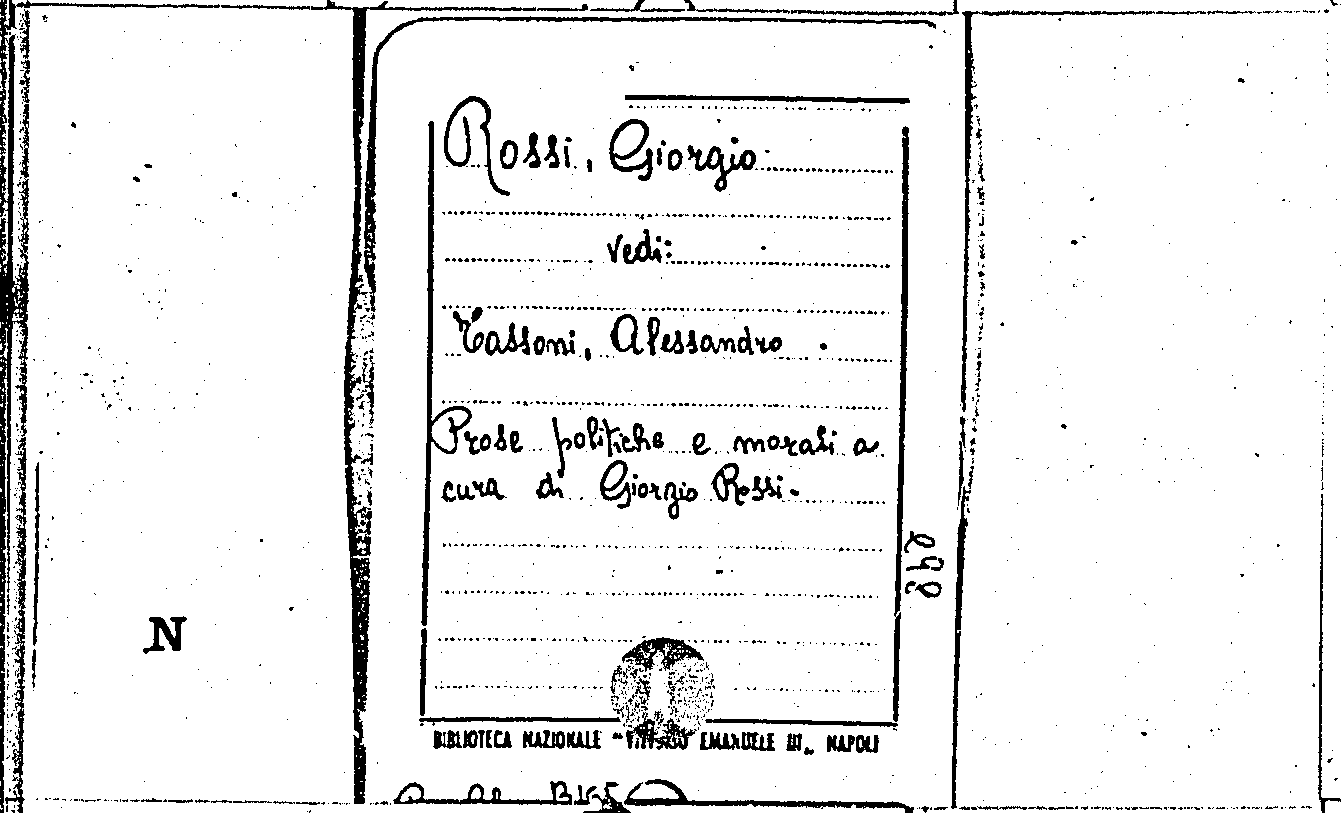 Rossi, Giorgio
vedi:
Tassoni, Alessandro.
Prose politiche e morali a
cura di Giorgio Rossi.
N
BIBLIOTECA NAZIONALE "VITTORIO EMANUELE III„ NAPOLI